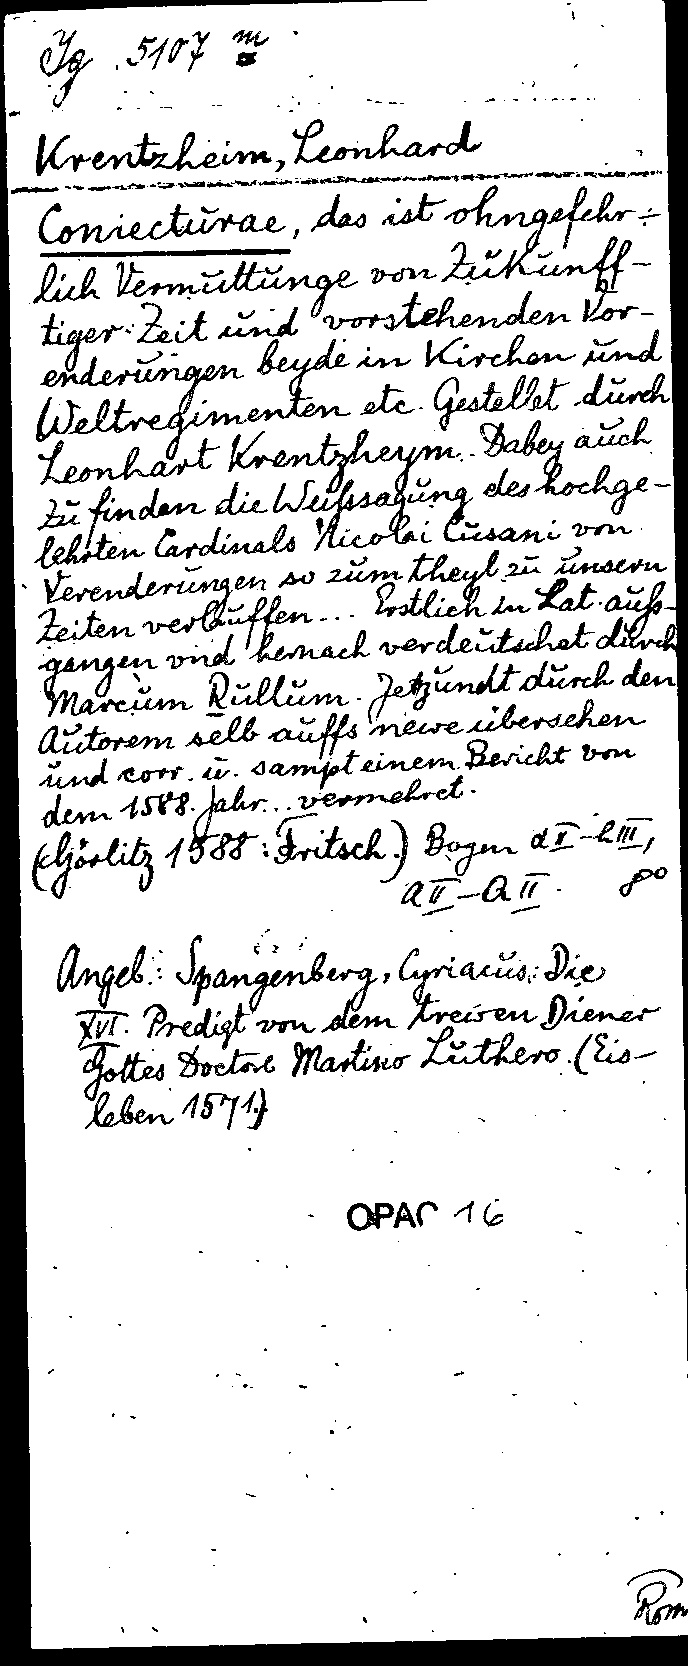 Jg 5107 m
Krentzheim, Leonhard
Coniecturae, das ist ohngefehr-
lich Vermuttunge von Zukunff-
tiger Zeit und vorstehenden Vor-
enderungen beyde in Kirchen und
Weltregimenten etc. Gestellet durch
Leonhart Krentzheym. Dabey auch
zu finden die Weissagung des hochge-
lehrten Cardinals Nicolai Cusani von
Verenderungen so zum theyl zu unsern
Zeiten verlauffen... Erstlich in Lat. auss-
gangen vnd hernach verdeutschet durch
Marcum Rullum. Jetzundt durch den
Autorem selb auffs newe übersehen
und corr. u. sampt einem Bericht von
dem 1588. Jahr... vermehret.
(Görlitz 1588: Fritsch.) Bogen a II - h III,
a II - Q II. 8°
Angeb.: Spangenberg, Cyriacus: Die
XVI. Predigt von dem trewen Diener
Gottes Doctore Martino Luthero. (Eis-
leben 1571.)
OPAC 16
Rom